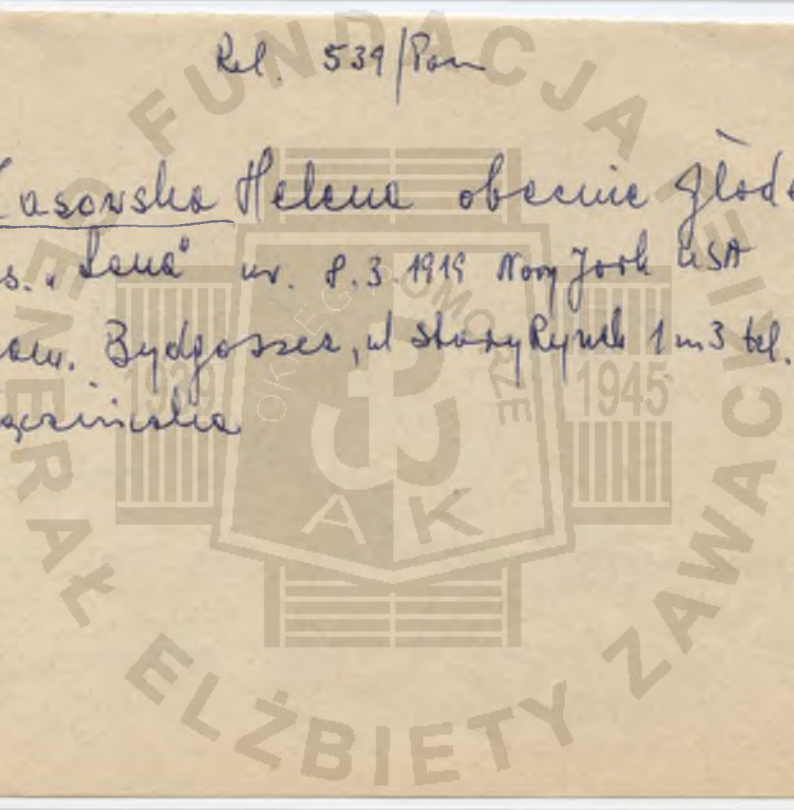 Rel. 539/Pom
Lasowska Helena obecnie Głod
s. „Lena" ur. 8.3.1919 Nowy Jork USA
Bydgoszcz, ul Stary Rynek 1 m 3 tel.
FUNDACJA GENERAŁ ELŻBIETY ZAWACKIEJ
OKRĘG POMORZE
1939 1945
AK